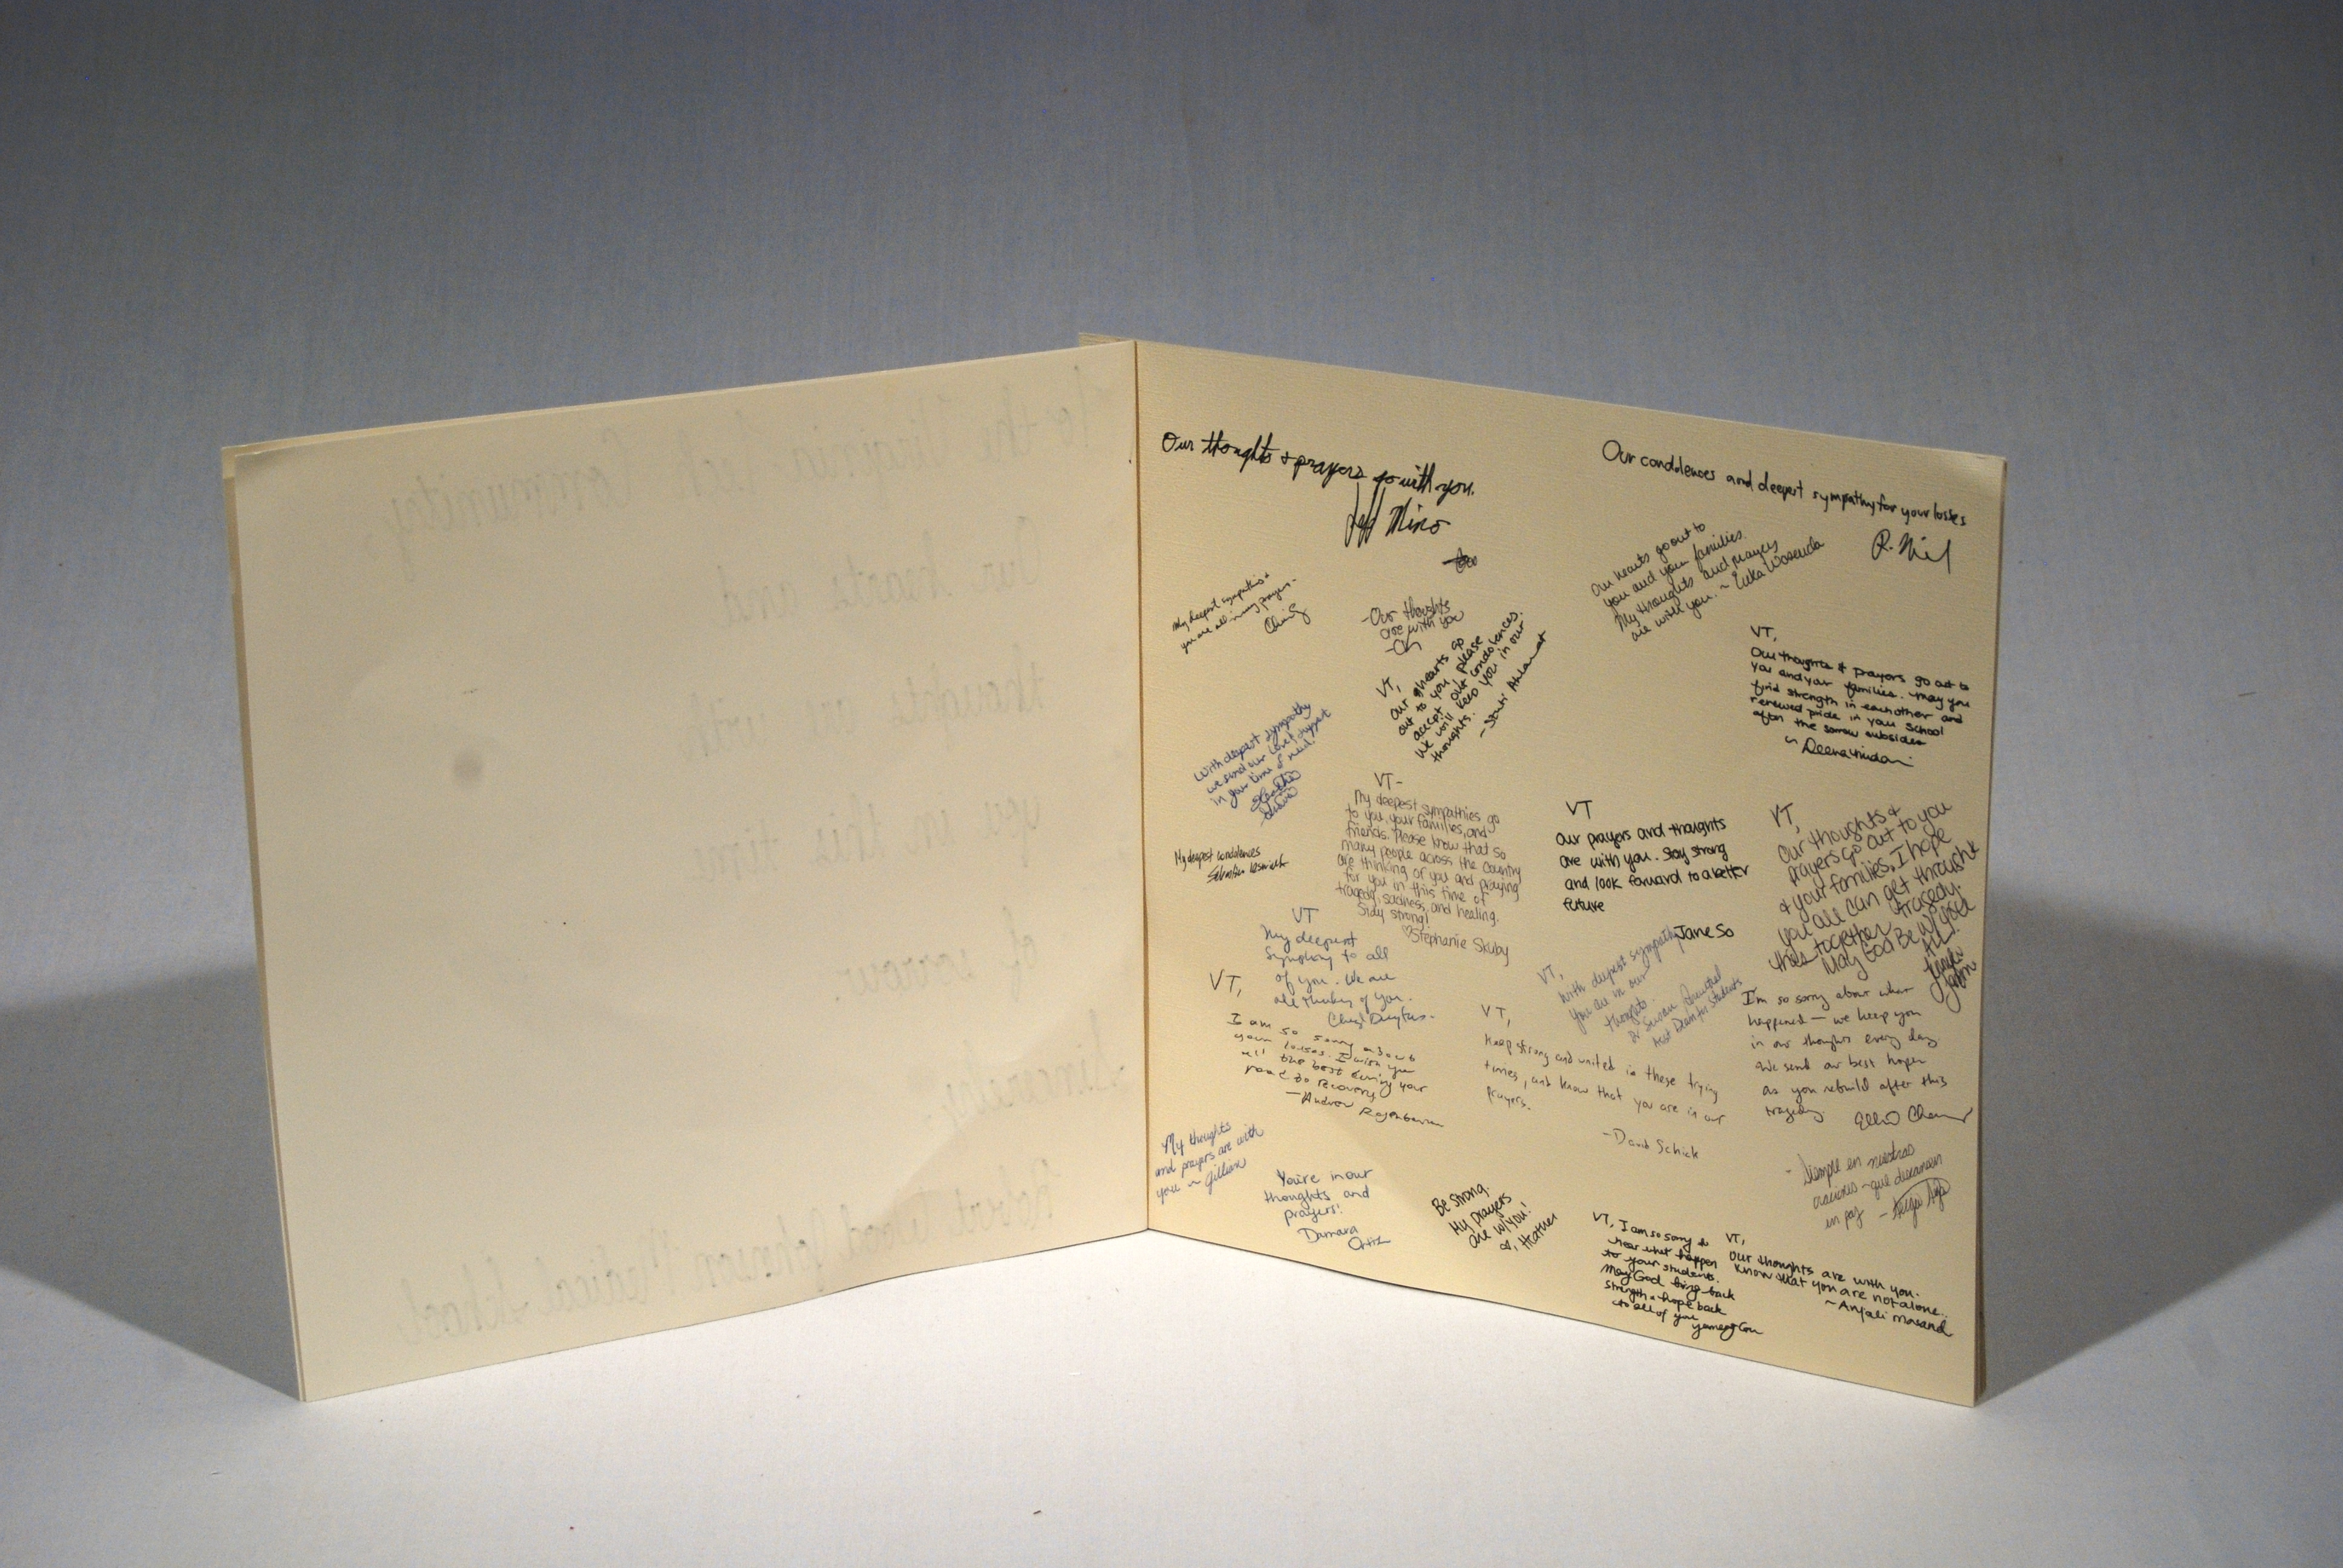 To the Virginia Tech Community,
Our hearts and
thoughts are with
you in this time
of sorrow.
Sincerely,
Robert Wood Johnson Medical School
Our thoughts & prayers go with you.
Jeff
My deepest sympathies &
you are all in my prayers -
- Our thoughts
are with you
VT,
Our hearts go
out to you please
accept our condolences.
We will keep you in our
thoughts.
With deepest sympathy
we send our love & support
in your time of need.
My deepest condolences
VT-
My deepest sympathies go
to you, your families, and
friends. Please know that so
many people across the country
are thinking of you and praying
for you in this time of
tragedy, sadness, and healing.
Stay strong!
♡Stephanie Skuby
VT
My deepest
sympathy to all
of you. We are
all thinking of you.
VT,
I am so sorry about
your losses. I wish you
all the best during your
road to recovery
-Andrew
My thoughts
and prayers are with
you ~ Gillian
You're in our
thoughts and
prayers!
Damara
Ortiz
Be strong.
My prayers
are w/you!
Heather
Our condolences and deepest sympathy for your losses
Our hearts go out to
you and your families.
My thoughts and prayers
are with you. ~ Erika
VT,
Our thoughts & prayers go out to
you and your families. May you
find strength in each other and
renewed pride in your school
after the sorrow subsides
VT
Our prayers and thoughts
are with you. Stay strong
and look forward to a better
future
Jane So
VT,
Our thoughts &
prayers go out to you
& your families. I hope
you all can get through
this together tragedy.
May God Be w/ you
all!
VT,
With deepest sympathy
you are in our
thoughts.
Dr Susan
Asst Dean for Students
VT,
Keep strong and united in these trying
times, and know that you are in our
prayers.
-David Schick
I'm so sorry about what
happened — we keep you
in our thoughts every day.
We send our best hopes
as you rebuild after this
tragedy.
- Siempre en nuestras
oraciones - que descansen
en paz
VT, I am so sorry to
hear what happen
to your students.
May God bring back
strength & hope back
to all of you
VT,
Our thoughts are with you.
Know that you are not alone.
~Anjali Masand